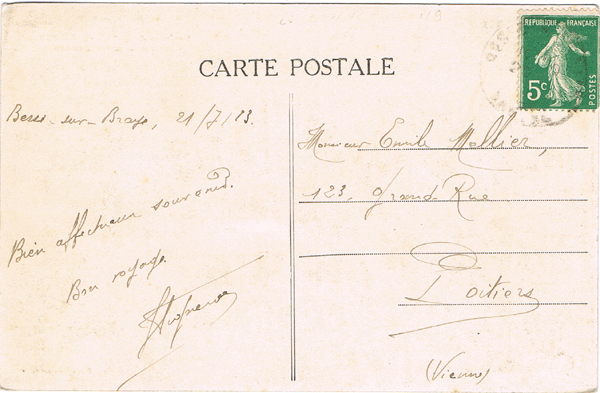 CARTE POSTALE
REPUBLIQUE FRANÇAISE
5c
POSTES
Bessé-sur-Braye, 21/7/13.
Bien affectueux souvenir.
Bon voyage
Monsieur Emile Mellier,
123, Grand-Rue
Poitiers
(Vienne)